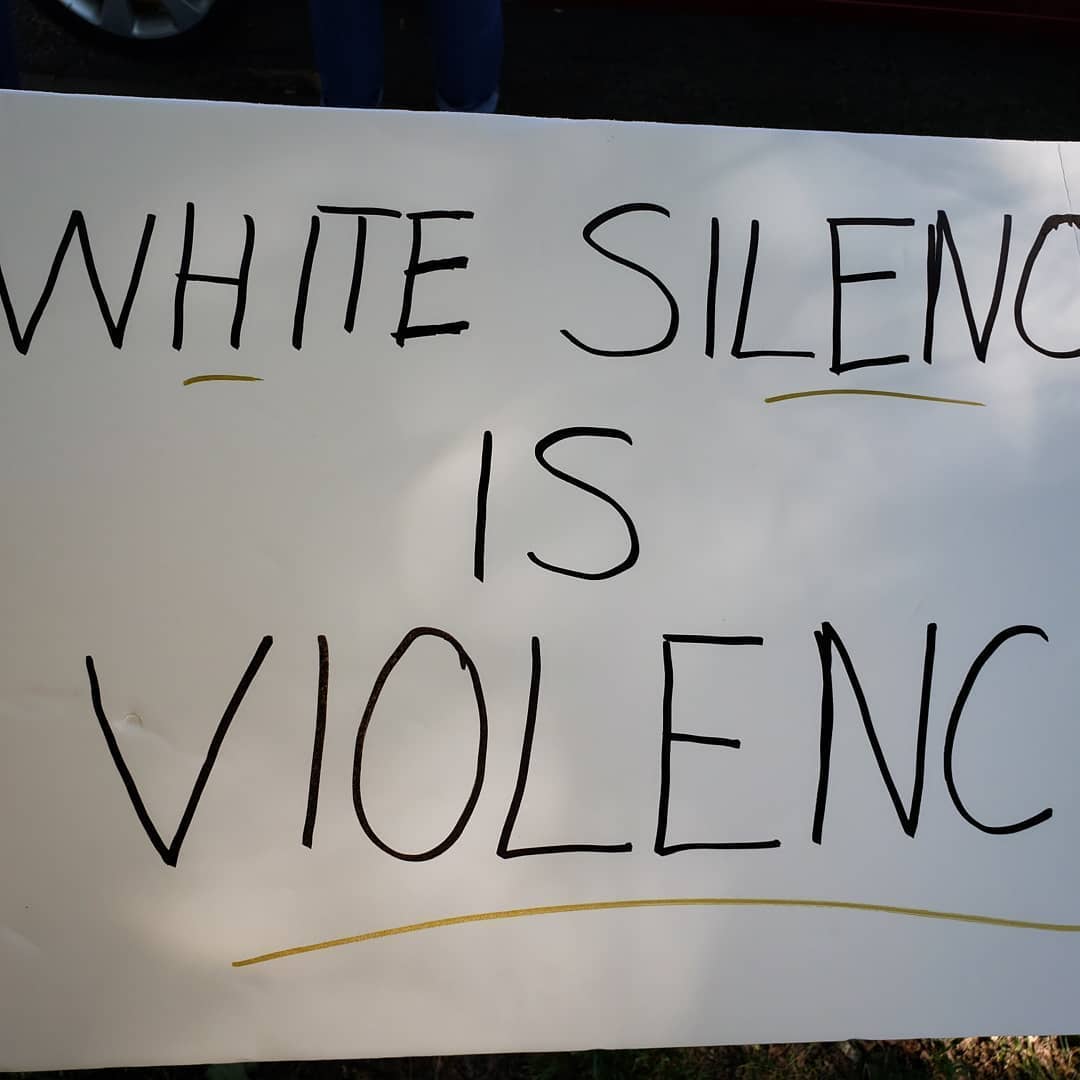 WHITE SILENC
IS
VIOLENC